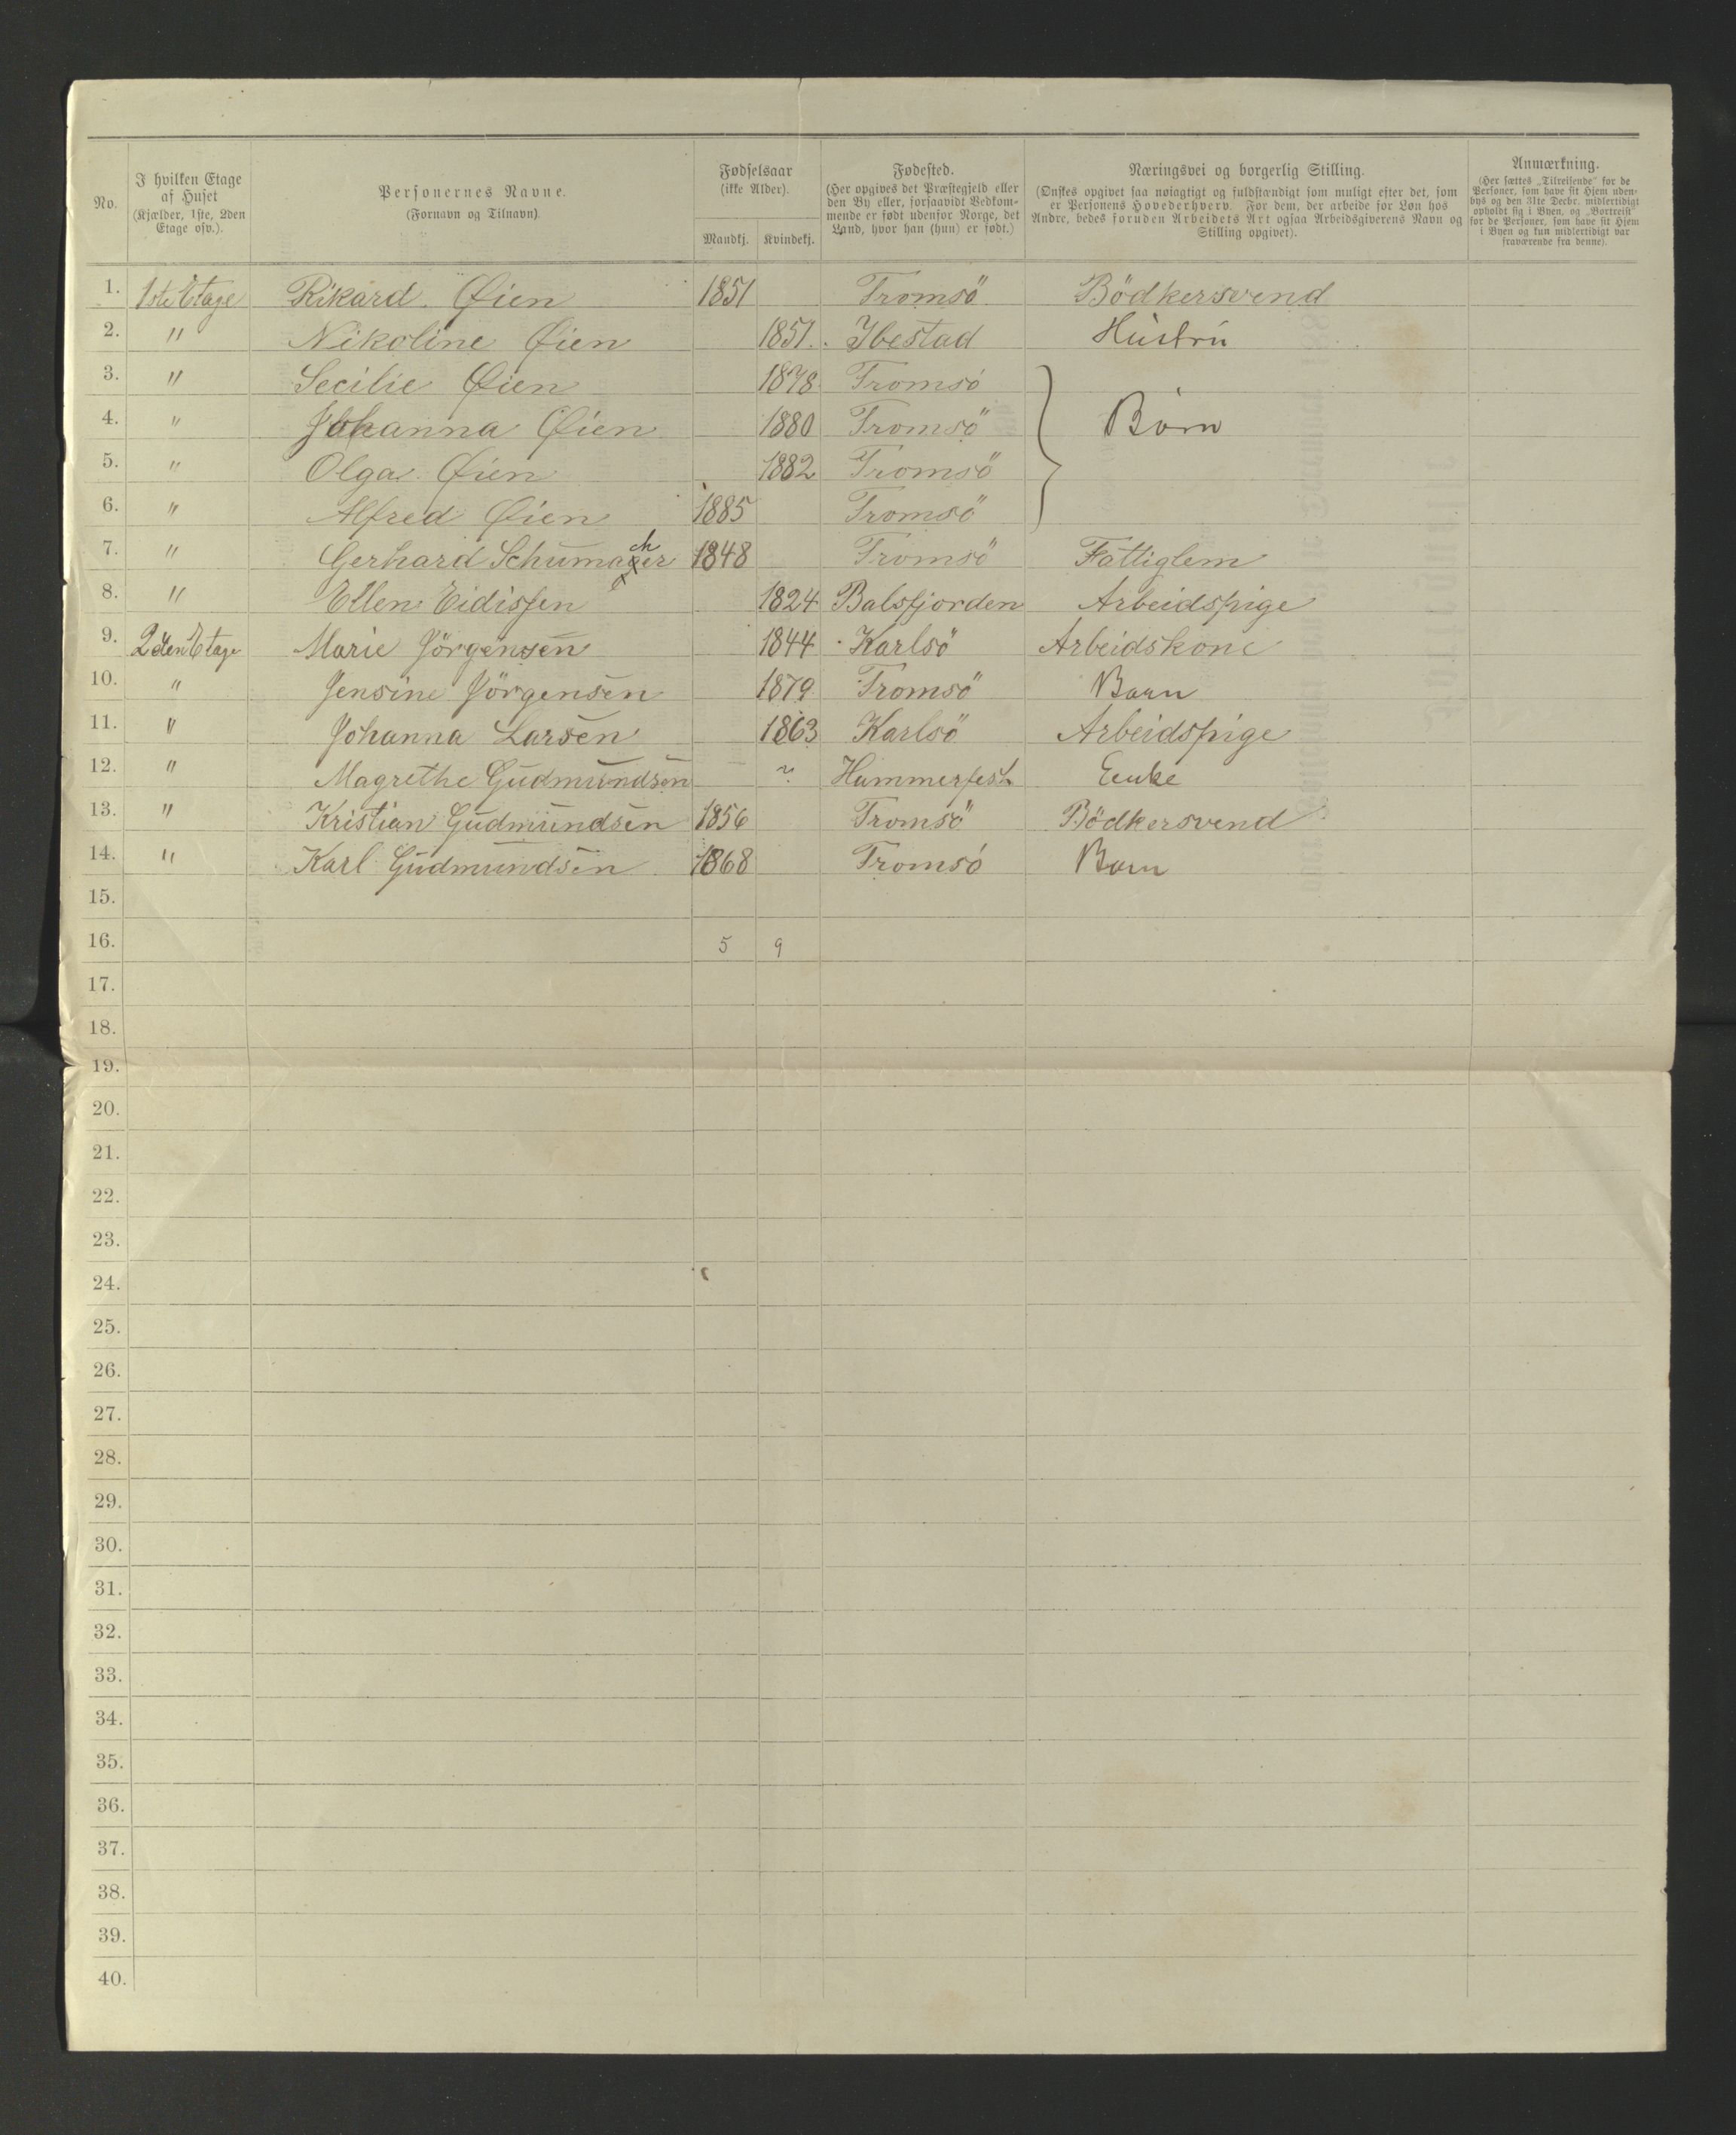 No. I hvilken Etage af Huset (Kjælder, 1ste, 2den Etage osv.). Personernes Navne. (Fornavn og Tilnavn). Fødselsaar (ikke Alder). Mandkj. Kvindekj. Fødested. (Her opgives det Præstegjeld eller den By eller, forsaavidt Vedkommende er født udenfor Norge, det Land, hvor han (hun) er født.) Næringsvei og borgerlig Stilling. (Ønskes opgivet saa nøiagtigt og fuldstændigt som muligt efter det, som er Personens Hovederhverv. For dem, der arbeide for Løn hos Andre, bedes foruden Arbeidets Art ogsaa Arbeidsgiverens Navn og Stilling opgivet). Anmærkning. (Her sættes „Tilreisende“ for de Personer, som have sit Hjem udenbys og den 31te Decbr. midlertidigt opholdt sig i Byen, og „Bortreist“ for de Personer, som have sit Hjem i Byen og kun midlertidigt var fraværende fra denne).
1. 1ste Etage Rikard Øien 1851 Tromsö Bödkersvend
2. " Nikoline Øien 1851. Ibestad Hustru
3. " Secilie Øien 1878 Tromsö
4. " Johanna Øien 1880 Tromsö Börn
5. " Olga Øien 1882 Tromsö
6. " Alfred Øien 1885 Tromsö
7. " Gerhard Schumacher 1848 Tromsö Fattiglem
8. " Ellen Eidissen 1824 Balsfjorden Arbeidspige
9. 2den Etage Marie Jörgensen 1844 Karlsö Arbeidskone
10. " Jensine Jörgensen 1879 Tromsö Barn
11. " Johanna Larsen 1863 Karlsö Arbeidspige
12. " Magrethe Gudmundsen ~ Hammerfest Enke
13. " Kristian Gudmundsen 1856 Tromsö Bödkersvend
14. " Karl Gudmundsen 1868 Tromsö Barn
15.
16. 5 9
17.
18.
19.
20.
21.
22.
23.
24.
25.
26.
27.
28.
29.
30.
31.
32.
33.
34.
35.
36.
37.
38.
39.
40.